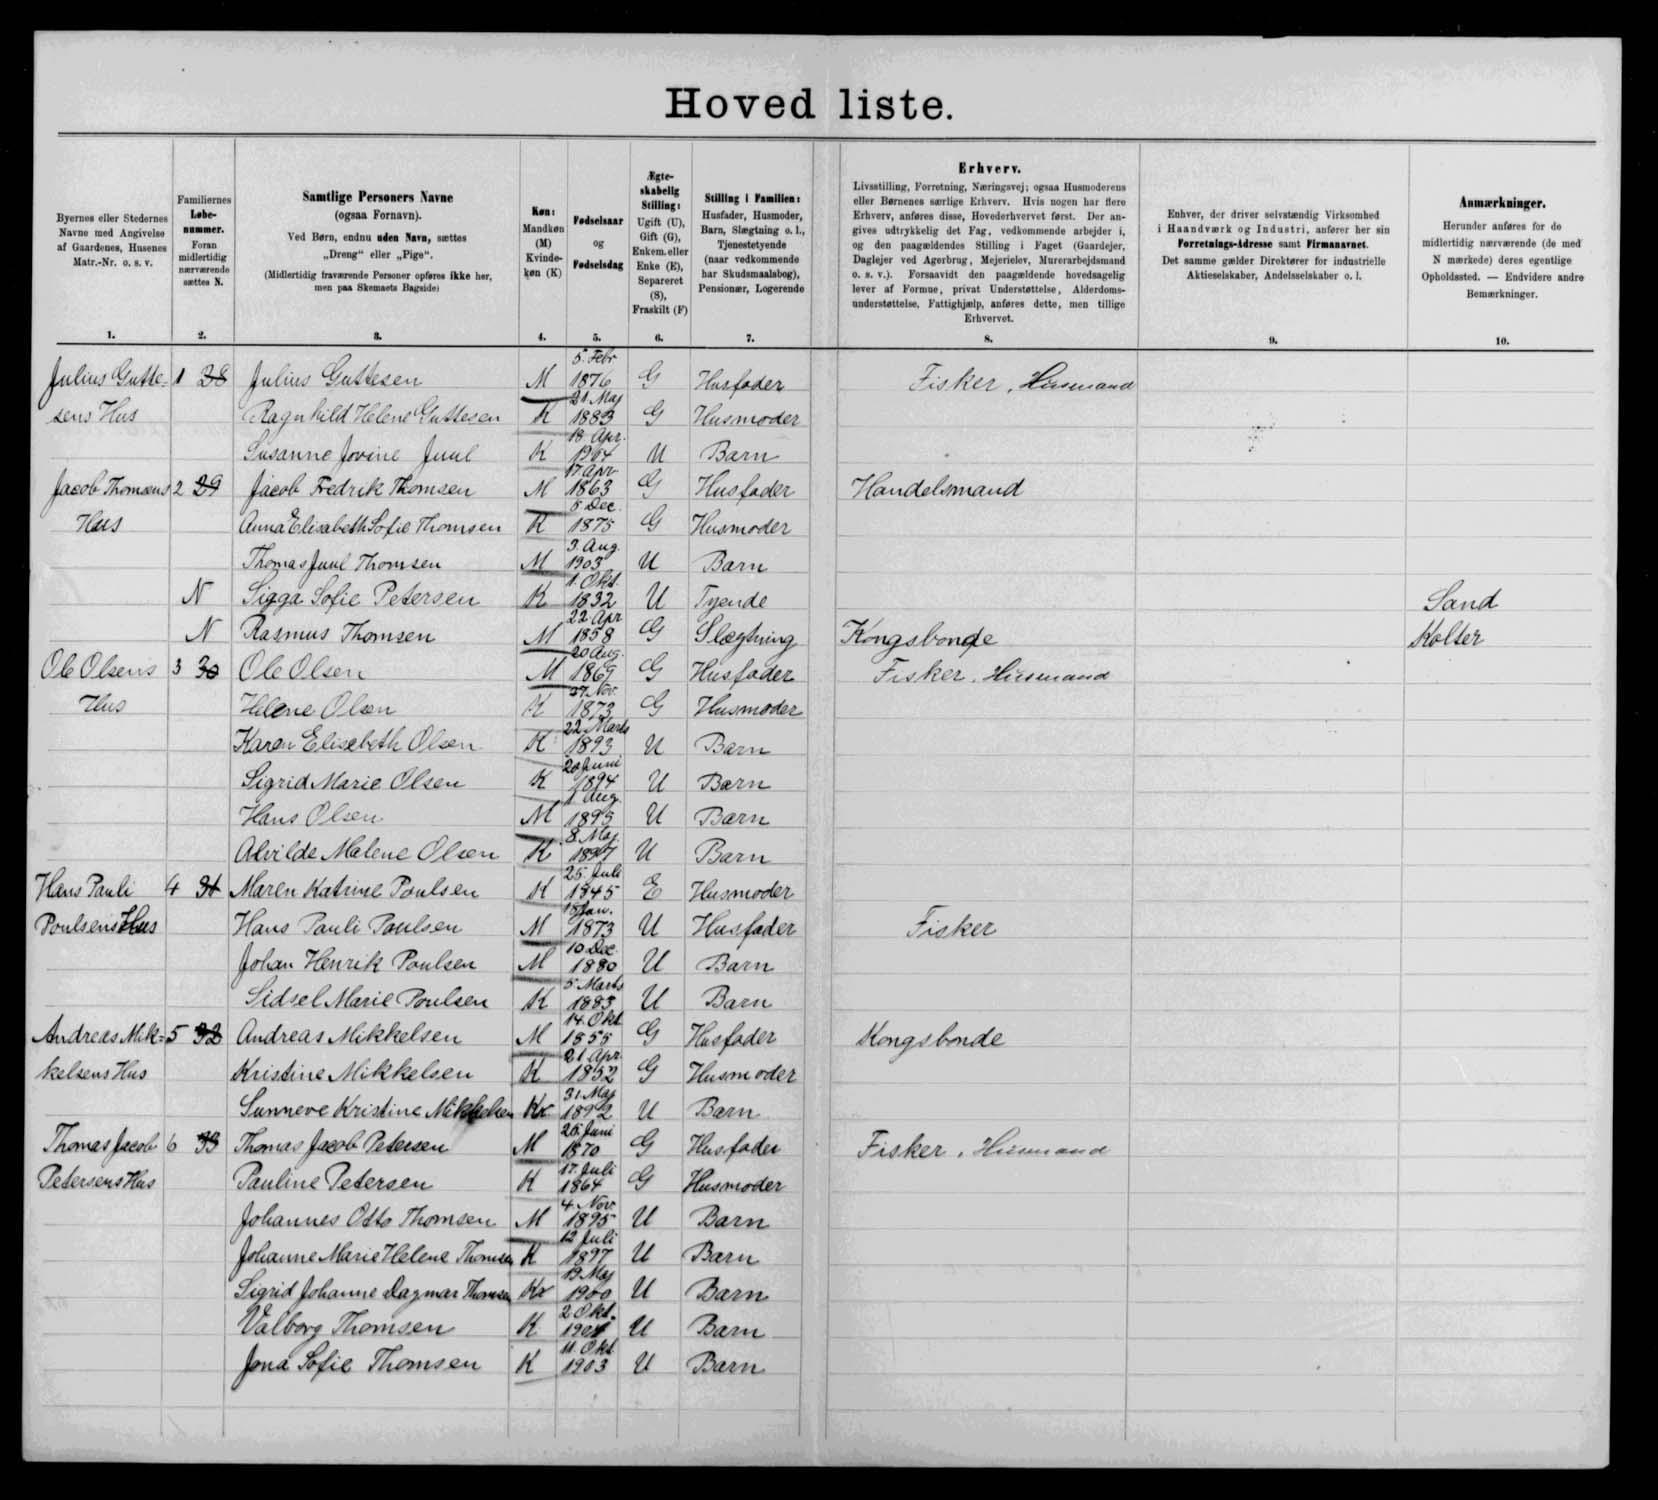 Hoved liste.
Byernes eller Stedernes Navne med Angivelse af Gaardenes, Husenes Matr.-Nr. o. s. v.
Familiernes Løbe-nummer. Foran midlertidig nærværende sættes N.
Samtlige Personers Navne
(ogsaa Fornavn).
Ved Børn, endnu uden Navn, sættes „Dreng“ eller „Pige“.
(Midlertidig fraværende Personer opføres ikke her, men paa Skemaets Bagside)
Køn: Mandkøn (M) Kvinde-køn (K)
Fødselsaar og Fødselsdag
Ægte-skabelig Stilling: Ugift (U), Gift (G), Enkem. eller Enke (E), Separeret (S), Fraskilt (F)
Stilling i Familien: Husfader, Husmoder, Barn, Slægtning o. l., Tjenestetyende (naar vedkommende har Skudsmaalsbog), Pensionær, Logerende
Erhverv.
Livsstilling, Forretning, Næringsvej; ogsaa Husmoderens eller Børnenes særlige Erhverv. Hvis nogen har flere Erhverv, anføres disse, Hovederhvervet først. Der angives udtrykkelig det Fag, vedkommende arbejder i, og den paagældendes Stilling i Faget (Gaardejer, Daglejer ved Agerbrug, Mejerielev, Murerarbejdsmand o. s. v.). Forsaavidt den paagældende hovedsagelig lever af Formue, privat Understøttelse, Alderdomsunderstøttelse, Fattighjælp, anføres dette, men tillige Erhvervet.
Enhver, der driver selvstændig Virksomhed i Haandværk og Industri, anfører her sin Forretnings-Adresse samt Firmanavnet. Det samme gælder Direktører for industrielle Aktieselskaber, Andelsselskaber o. l.
Anmærkninger.
Herunder anføres for de midlertidig nærværende (de med N mærkede) deres egentlige Opholdssted. — Endvidere andre Bemærkninger.
1. 2. 3. 4. 5. 6. 7. 8. 9. 10.
Julius Gutte- 1 28 Julius Guttesen M 5. Febr 1876 G Husfader Fisker, Husmand
sens Hus Ragnhild Helene Guttesen K 21 Maj 1883 G Husmoder
Susanne Jovine Juul K 18 Apr. 1904 U Barn
Jacob Thomsens 2 29 Jacob Fredrik Thomsen M 17 Apr 1863 G Husfader Handelsmand
Hus Anna Elisabeth Sofie Thomsen K 5 Dec. 1875 G Husmoder
Thomas Juul Thomsen M 3. Aug. 1903 U Barn
N Sigga Sofie Petersen K 1. Okt. 1832 U Tyende Sand
N Rasmus Thomsen M 22 Apr 1858 G Slægtning Kongsbonde Kolter
Ole Olsens 3 30 Ole Olsen M 20 Aug. 1869 G Husfader Fisker, Husmand
Hus Helene Olsen K 27 Nov 1873 G Husmoder
Karen Elisebeth Olsen K 22 Marts 1893 U Barn
Sigrid Marie Olsen K 20 Juni 1894 U Barn
Hans Olsen M 1 Aug. 1895 U Barn
Alvilde Malene Olsen K 8. Maj 1897 U Barn
Hans Pauli 4 31 Maren Katrine Poulsen K 25. Juli 1845 E Husmoder
Poulsens Hus Hans Pauli Poulsen M Jan. 1873 U Husfader Fisker
Johan Henrik Poulsen M 10 Dec. 1880 U Barn
Sidsel Marie Poulsen K 5 Marts 1883 U Barn
Andreas Mik= 5 32 Andreas Mikkelsen M 14. Okt 1855 G Husfader Kongsbonde
kelsens Hus Kristine Mikkelsen K 21 Apr. 1852 G Husmoder
Sunneve Kristine Mikkelsen K 31. Maj 1892 U Barn
Thomas Jacob 6 33 Thomas Jacob Petersen M 25 Juni 1870 G Husfader Fisker, Husmand
Petersens Hus Pauline Petersen K 17. Juli 1864 G Husmoder
Johannes Otto Thomsen M 4. Nov. 1895 U Barn
Johanne Marie Helene Thomsen K 12 Juli 1897 U Barn
Sigrid Johanne Dagmar Thomsen K 19 Maj 1900 U Barn
Valborg Thomsen K 2 Okt. 1901 U Barn
Jona Sofie Thomsen K 11. Okt 1903 U Barn